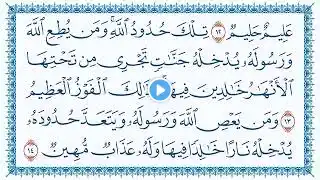 عَلِيمٌ حَلِيمٌ ١٢ تِلْكَ حُدُودُ اللَّهِ ۚ وَمَن يُطِعِ اللَّهَ
وَرَسُولَهُ يُدْخِلْهُ جَنَّاتٍ تَجْرِي مِن تَحْتِهَا
الْأَنْهَارُ خَالِدِينَ فِيهَا ۚ وَذَٰلِكَ الْفَوْزُ الْعَظِيمُ
١٣ وَمَن يَعْصِ اللَّهَ وَرَسُولَهُ وَيَتَعَدَّ حُدُودَهُ
يُدْخِلْهُ نَارًا خَالِدًا فِيهَا وَلَهُ عَذَابٌ مُّهِينٌ ١٤